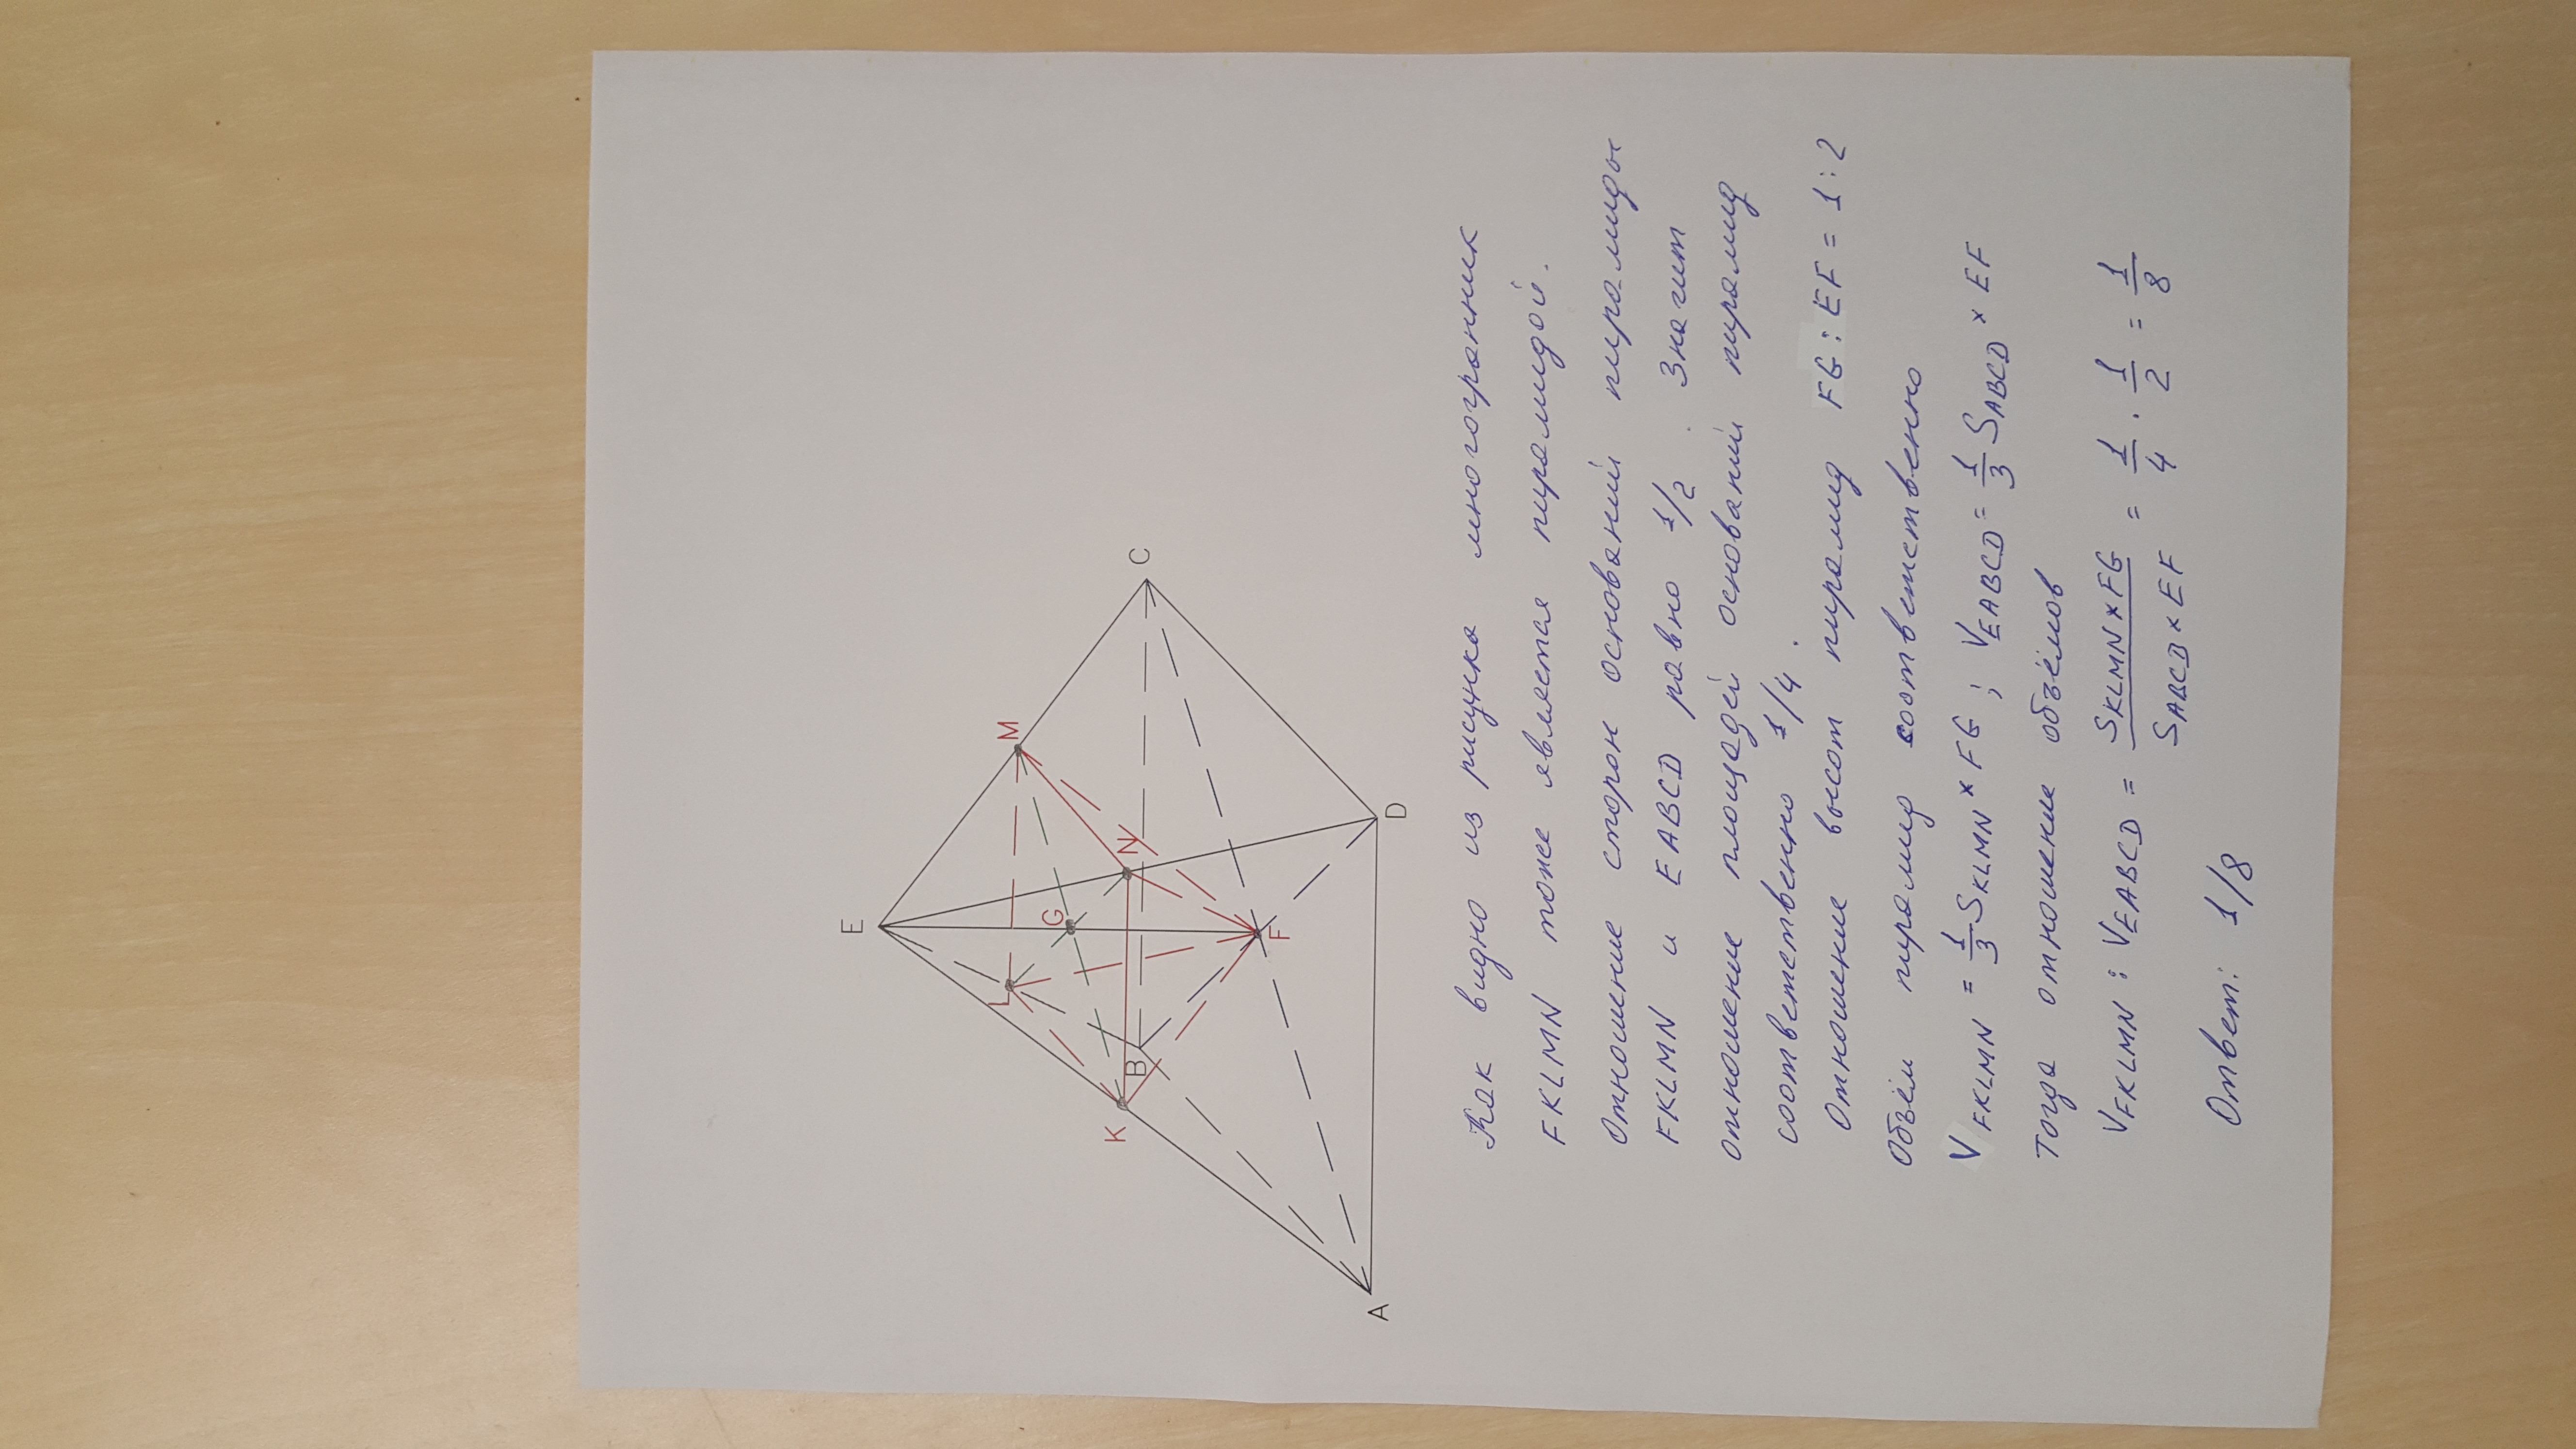 E
M
L
G
C
K
B
N
F
A
D
Как видно из рисунка многогранник
FKLMN тоже является пирамидой.
Отношение сторон оснований пирамиды
FKLMN и EABCD равно 1/2. Значит
отношение площадей оснований пирамид
соответственно 1/4.
Отношение высот пирамид FG : EF = 1 : 2
Объём пирамид соответственно
V FKLMN = 1/3 SKLMN × FG ; VEABCD = 1/3 SABCD × EF
Тогда отношение объёмов
VFKLMN : VEABCD = SKLMN × FG / SABCD × EF = 1/4 · 1/2 = 1/8
Ответ: 1/8